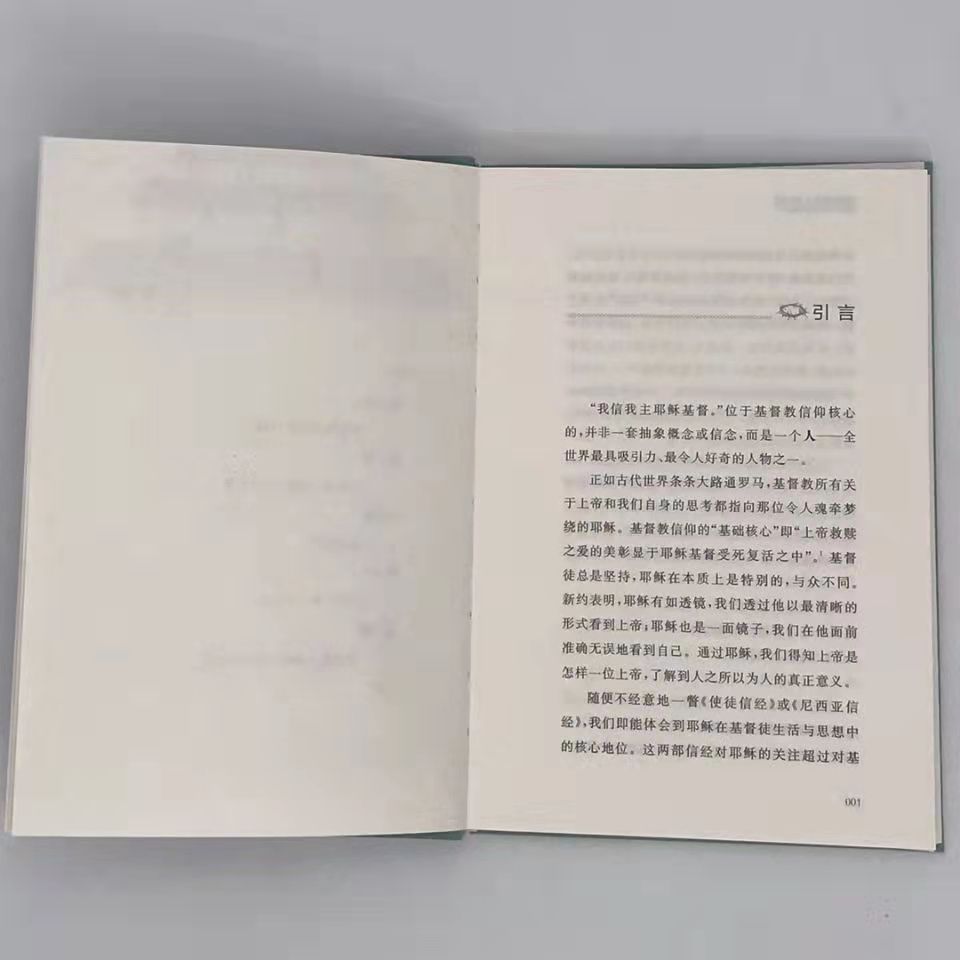 引言
“我信我主耶稣基督。”位于基督教信仰核心
的，并非一套抽象概念或信念，而是一个人——全
世界最具吸引力、最令人好奇的人物之一。
正如古代世界条条大路通罗马，基督教所有关
于上帝和我们自身的思考都指向那位令人魂牵梦
绕的耶稣。基督教信仰的“基础核心”即“上帝救赎
之爱的美彰显于耶稣基督受死复活之中”。¹基督
徒总是坚持，耶稣在本质上是特别的，与众不同。
新约表明，耶稣有如透镜，我们透过他以最清晰的
形式看到上帝；耶稣也是一面镜子，我们在他面前
准确无误地看到自己。通过耶稣，我们得知上帝是
怎样一位上帝，了解到人之所以为人的真正意义。
随便不经意地一瞥《使徒信经》或《尼西亚信
经》，我们即能体会到耶稣在基督徒生活与思想中
的核心地位。这两部信经对耶稣的关注超过对基
001